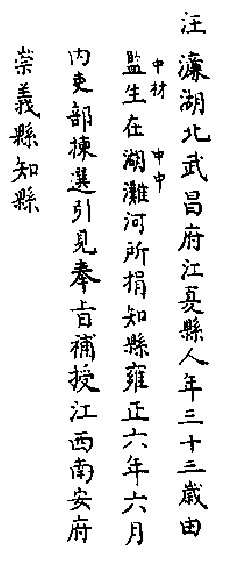 汪濂湖北武昌府江夏縣人年三十三歲由
監生在湖灘河所捐知縣雍正六年六月
内吏部揀選引見奉旨補授江西南安府
崇義縣知縣
中材
中中